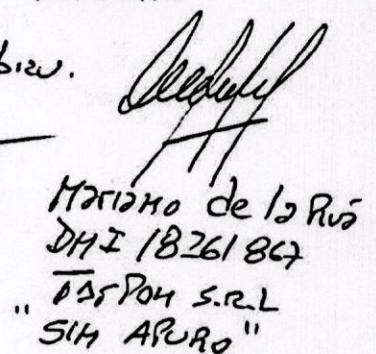 Mariano de la Rúa
DNI 18261867
S.R.L
"SIN APURO"